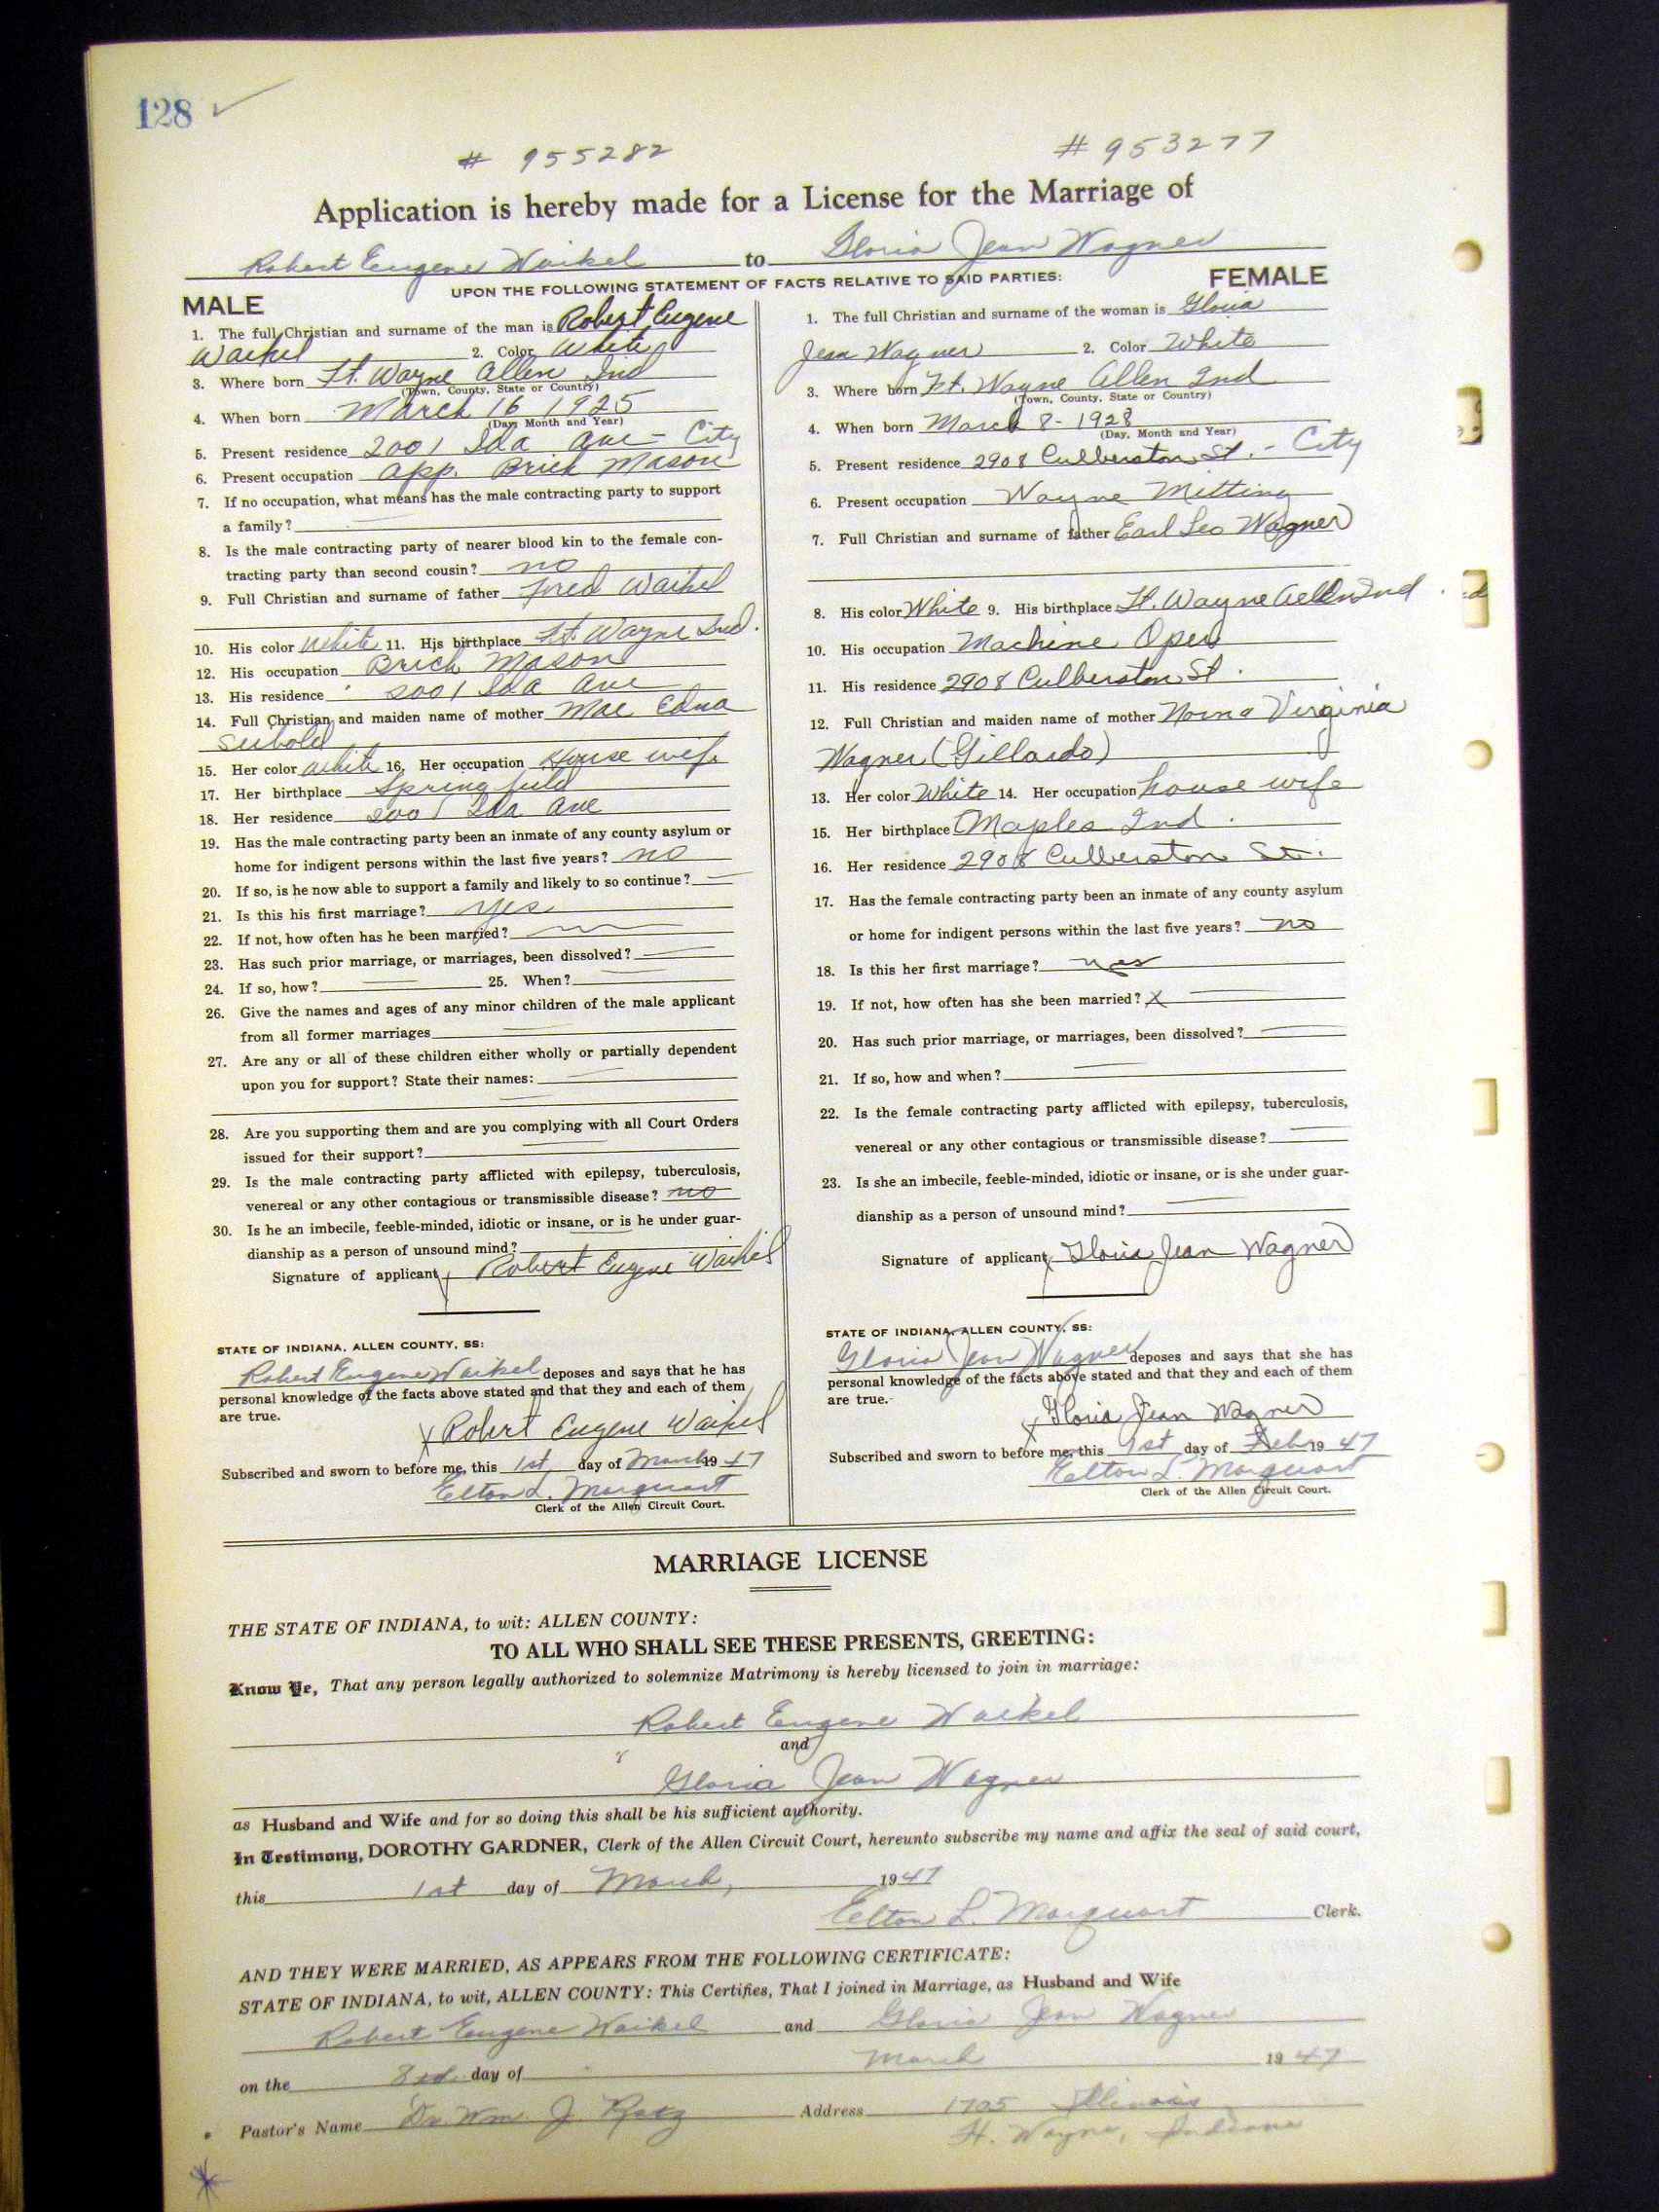 128
# 955282 # 953277
Application is hereby made for a License for the Marriage of
Robert Eugene Waikel to Gloria Jean Wagner
UPON THE FOLLOWING STATEMENT OF FACTS RELATIVE TO SAID PARTIES:
MALE
1. The full Christian and surname of the man is Robert Eugene
Waikel 2. Color White
3. Where born Ft. Wayne Allen Ind
(Town, County, State or Country)
4. When born March 16 1925
(Day, Month and Year)
5. Present residence 2001 Ida Ave - City
6. Present occupation App. Brick Mason
7. If no occupation, what means has the male contracting party to support
a family?
8. Is the male contracting party of nearer blood kin to the female con-
tracting party than second cousin? no
9. Full Christian and surname of father Fred Waikel
10. His color White 11. His birthplace Ft. Wayne Ind.
12. His occupation Brick Mason
13. His residence 2001 Ida Ave
14. Full Christian and maiden name of mother Mae Edna
Seibold
15. Her color White 16. Her occupation House wife
17. Her birthplace Springfield
18. Her residence 2001 Ida Ave
19. Has the male contracting party been an inmate of any county asylum or
home for indigent persons within the last five years? no
20. If so, is he now able to support a family and likely to so continue?
21. Is this his first marriage? yes
22. If not, how often has he been married?
23. Has such prior marriage, or marriages, been dissolved?
24. If so, how? 25. When?
26. Give the names and ages of any minor children of the male applicant
from all former marriages
27. Are any or all of these children either wholly or partially dependent
upon you for support? State their names:
28. Are you supporting them and are you complying with all Court Orders
issued for their support?
29. Is the male contracting party afflicted with epilepsy, tuberculosis,
venereal or any other contagious or transmissible disease? no
30. Is he an imbecile, feeble-minded, idiotic or insane, or is he under guar-
dianship as a person of unsound mind?
Signature of applicant x Robert Eugene Waikel
STATE OF INDIANA, ALLEN COUNTY, SS:
Robert Eugene Waikel deposes and says that he has
personal knowledge of the facts above stated and that they and each of them
are true.
x Robert Eugene Waikel
Subscribed and sworn to before me, this 1st day of March 19 47
Elton L. Marquart
Clerk of the Allen Circuit Court.
FEMALE
1. The full Christian and surname of the woman is Gloria
Jean Wagner 2. Color White
3. Where born Ft. Wayne Allen Ind
(Town, County, State or Country)
4. When born March 8 - 1928
(Day, Month and Year)
5. Present residence 2908 Culberston St. - City
6. Present occupation Wayne Mitting
7. Full Christian and surname of father Earl Leo Wagner
8. His color White 9. His birthplace Ft. Wayne Allen Ind
10. His occupation Machine Oper
11. His residence 2908 Culberston St.
12. Full Christian and maiden name of mother Norma Virginia
Wagner (Gillardo)
13. Her color White 14. Her occupation house wife
15. Her birthplace Maples Ind.
16. Her residence 2908 Culberston St.
17. Has the female contracting party been an inmate of any county asylum
or home for indigent persons within the last five years? no
18. Is this her first marriage? yes
19. If not, how often has she been married? X
20. Has such prior marriage, or marriages, been dissolved?
21. If so, how and when?
22. Is the female contracting party afflicted with epilepsy, tuberculosis,
venereal or any other contagious or transmissible disease?
23. Is she an imbecile, feeble-minded, idiotic or insane, or is she under guar-
dianship as a person of unsound mind?
Signature of applicant x Gloria Jean Wagner
STATE OF INDIANA, ALLEN COUNTY, SS:
Gloria Jean Wagner deposes and says that she has
personal knowledge of the facts above stated and that they and each of them
are true.
x Gloria Jean Wagner
Subscribed and sworn to before me, this 1st day of Feb 19 47
Elton L. Marquart
Clerk of the Allen Circuit Court.
MARRIAGE LICENSE
THE STATE OF INDIANA, to wit: ALLEN COUNTY:
TO ALL WHO SHALL SEE THESE PRESENTS, GREETING:
Know Ye, That any person legally authorized to solemnize Matrimony is hereby licensed to join in marriage:
Robert Eugene Waikel
and
Gloria Jean Wagner
as Husband and Wife and for so doing this shall be his sufficient authority.
In Testimony, DOROTHY GARDNER, Clerk of the Allen Circuit Court, hereunto subscribe my name and affix the seal of said court,
this 1st day of March, 1947
Elton L. Marquart Clerk.
AND THEY WERE MARRIED, AS APPEARS FROM THE FOLLOWING CERTIFICATE:
STATE OF INDIANA, to wit, ALLEN COUNTY: This Certifies, That I joined in Marriage, as Husband and Wife
Robert Eugene Waikel and Gloria Jean Wagner
on the day of March 1947
Pastor's Name Dr. Wm. J. Ratz Address 1705 Illinois
Ft. Wayne, Indiana